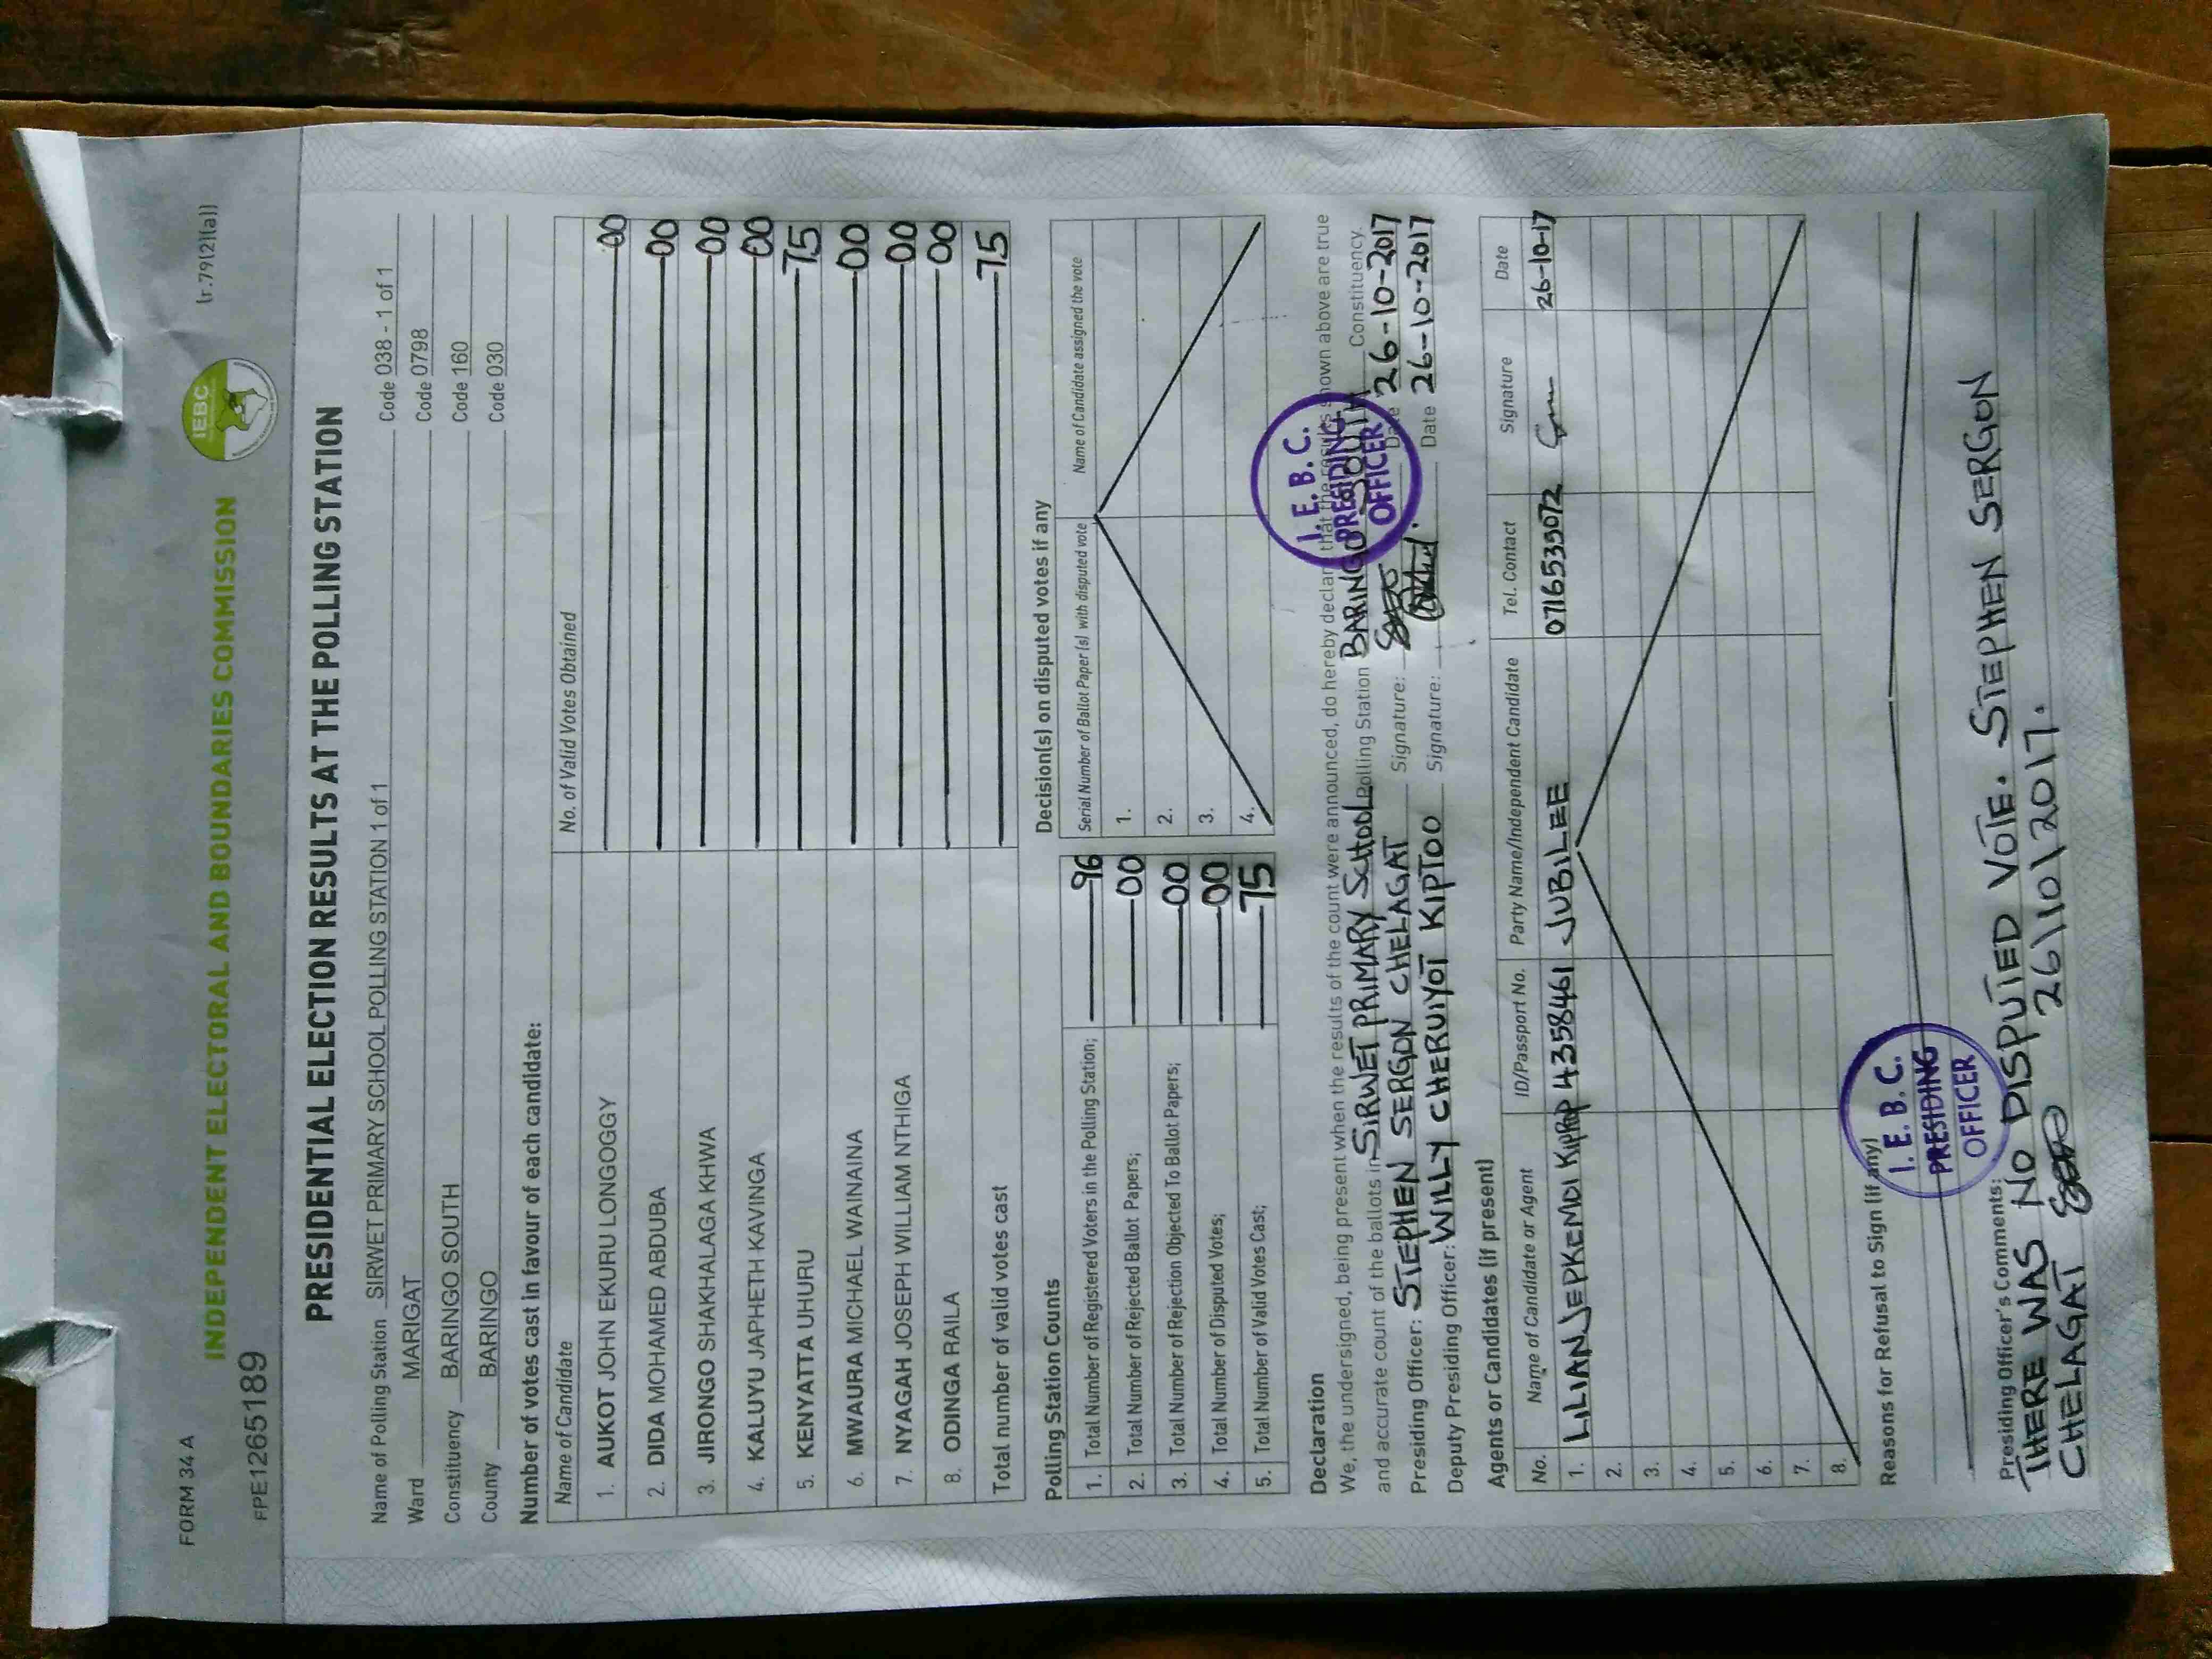 FORM 34 A
(r.79(2)(a))
INDEPENDENT ELECTORAL AND BOUNDARIES COMMISSION
IEBC
FPE1265189
PRESIDENTIAL ELECTION RESULTS AT THE POLLING STATION
Name of Polling Station SIRWET PRIMARY SCHOOL POLLING STATION 1 of 1 Code 038 - 1 of 1
Ward MARIGAT Code 0798
Constituency BARINGO SOUTH Code 160
County BARINGO Code 030
Number of votes cast in favour of each candidate:
Name of Candidate No. of Valid Votes Obtained
1. AUKOT JOHN EKURU LONGOGGY 00
2. DIDA MOHAMED ABDUBA 00
3. JIRONGO SHAKHALAGA KHWA 00
4. KALUYU JAPHETH KAVINGA 00
5. KENYATTA UHURU 75
6. MWAURA MICHAEL WAINAINA 00
7. NYAGAH JOSEPH WILLIAM NTHIGA 00
8. ODINGA RAILA 00
Total number of valid votes cast 75
Polling Station Counts
1. Total Number of Registered Voters in the Polling Station; 96
2. Total Number of Rejected Ballot Papers; 00
3. Total Number of Rejection Objected To Ballot Papers; 00
4. Total Number of Disputed Votes; 00
5. Total Number of Valid Votes Cast; 75
Decision(s) on disputed votes if any
Serial Number of Ballot Paper (s) with disputed vote Name of Candidate assigned the vote
1.
2.
3.
4.
Declaration
We, the undersigned, being present when the results of the count were announced, do hereby declare that the results shown above are true
and accurate count of the ballots in SIRWET PRIMARY SCHOOL Polling Station BARINGO SOUTH Constituency.
Presiding Officer: STEPHEN SERGON CHELAGAT Signature: Date 26-10-2017
Deputy Presiding Officer: WILLY CHERUIYOT KIPTOO Signature: Date 26-10-2017
I. E. B. C.
PRESIDING
OFFICER
Agents or Candidates (if present)
No. Name of Candidate or Agent ID/Passport No. Party Name/Independent Candidate Tel. Contact Signature Date
1. LILIAN JEPKEMDI 4358461 JUBILEE 0716535072 26-10-17
2.
3.
4.
5.
6.
7.
8.
Reasons for Refusal to Sign (if any)
I. E. B. C.
PRESIDING
OFFICER
Presiding Officer's Comments:
THERE WAS NO DISPUTED VOTE. STEPHEN SERGON
CHELAGAT 26/10/2017.